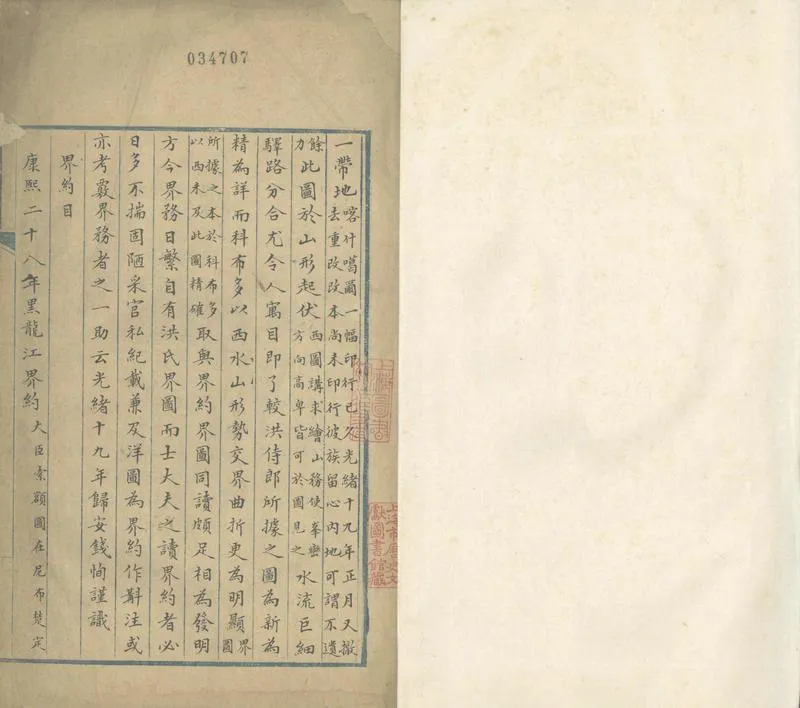 034707
一帶地喀什噶爾一幅印行已久光緒十九年正月又撤
去重改改本尚未印行彼族留心內地可謂不遺
餘力此圖於山形起伏西圖講求繪山務使峯巒
方向高卑皆可於圖見之水流巨細
驛路分合尤令人寓目即了較洪侍郎所據之圖為新為
精為詳而科布多以西水山形勢交界曲折更為明顯界圖
所據之本於科布多
以西未及此圖精確取與界約界圖同讀頗足相為發明
方今界務日繁自有洪氏界圖而士大夫之讀界約者必
日多不揣固陋采官私紀載兼及洋圖為界約作斠注或
亦考覈界務者之一助云光緒十九年歸安錢恂謹識
界約目
康熙二十八年黑龍江界約大臣索額圖在尼布楚定
上海市歷史文
獻圖書館藏